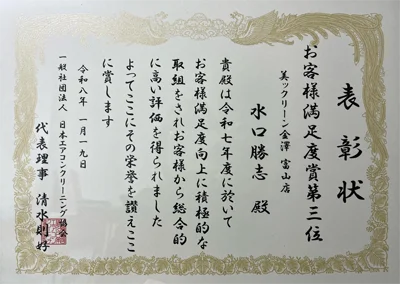 表彰状
お客様満足度賞第三位
美ックリーン金澤 富山店
水口勝志 殿
貴殿は令和七年度に於いて
お客様満足度向上に積極的な
取組をされお客様から総合的
に高い評価を得られました
よってここにその栄誉を讃えここ
に賞します
令和八年 一月一九日
一般社団法人 日本エアコンクリーニング協会
代表理事 清水則好